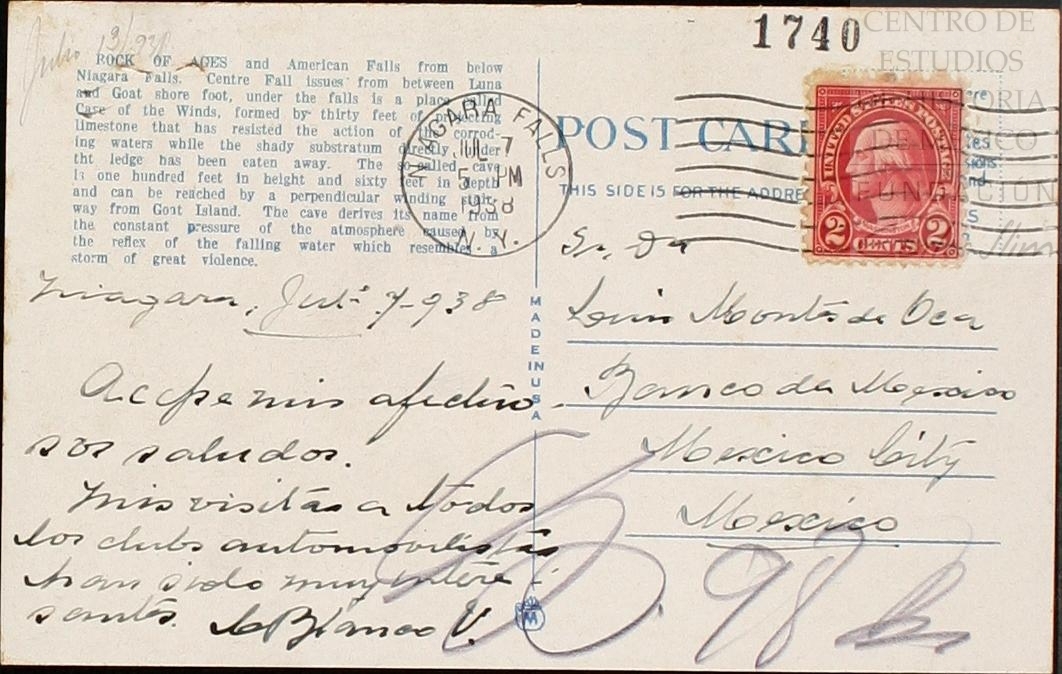 Julio 13/938
1740
CENTRO DE
ESTUDIOS
ROCK OF AGES and American Falls from below
Niagara Falls. Centre Fall issues from between Luna
and Goat shore foot, under the falls is a place called
Cave of the Winds, formed by thirty feet of projecting
limestone that has resisted the action of the corrod-
ing waters while the shady substratum directly under
tht ledge has been eaten away. The so-called cave
is one hundred feet in height and sixty feet in depth
and can be reached by a perpendicular winding stair-
way from Goat Island. The cave derives its name from
the constant pressure of the atmosphere caused by
the reflex of the falling water which resembles a
storm of great violence.
NIAGARA FALLS
JUL 7
5 PM
1938
N.Y.
POST CARD
THIS SIDE IS FOR THE ADDRE
UNITED STATES POSTAGE
2 CENTS 2
DE MÉXICO
FUNDACIÓN
Niagara, Jul. 7-938
Acepte mis afectuo-
sos saludos.
Mis visitas a todos
los clubs automovilistas
han sido muy intere-
santes. LeBlanco V.
MADE IN USA
M
Sr. Dn
Luis Montes de Oca
Banco de Mexico
Mexico City
Mexico
98